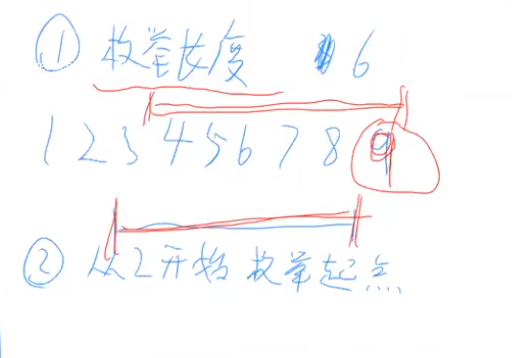 ① 枚举长度 6
1 2 3 4 5 6 7 8 9
② 从2开始 枚举起点